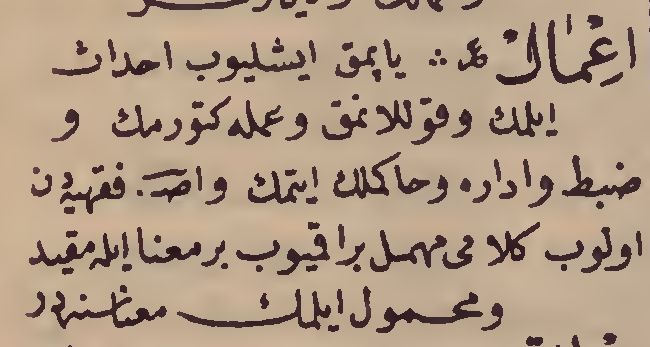 اِعْمَالْ ع ∴ ياپمق ايشليوب احداث
ايلمك وقوللانمق وعمله كتورمك و
ضبط واداره وحاكملك ايتمك واصـ. فقهيه‌دن
اولوب كلامى مهمل براقميوب بر معنا ايله مقيد
ومحمول ايلمك معناسنه‌در